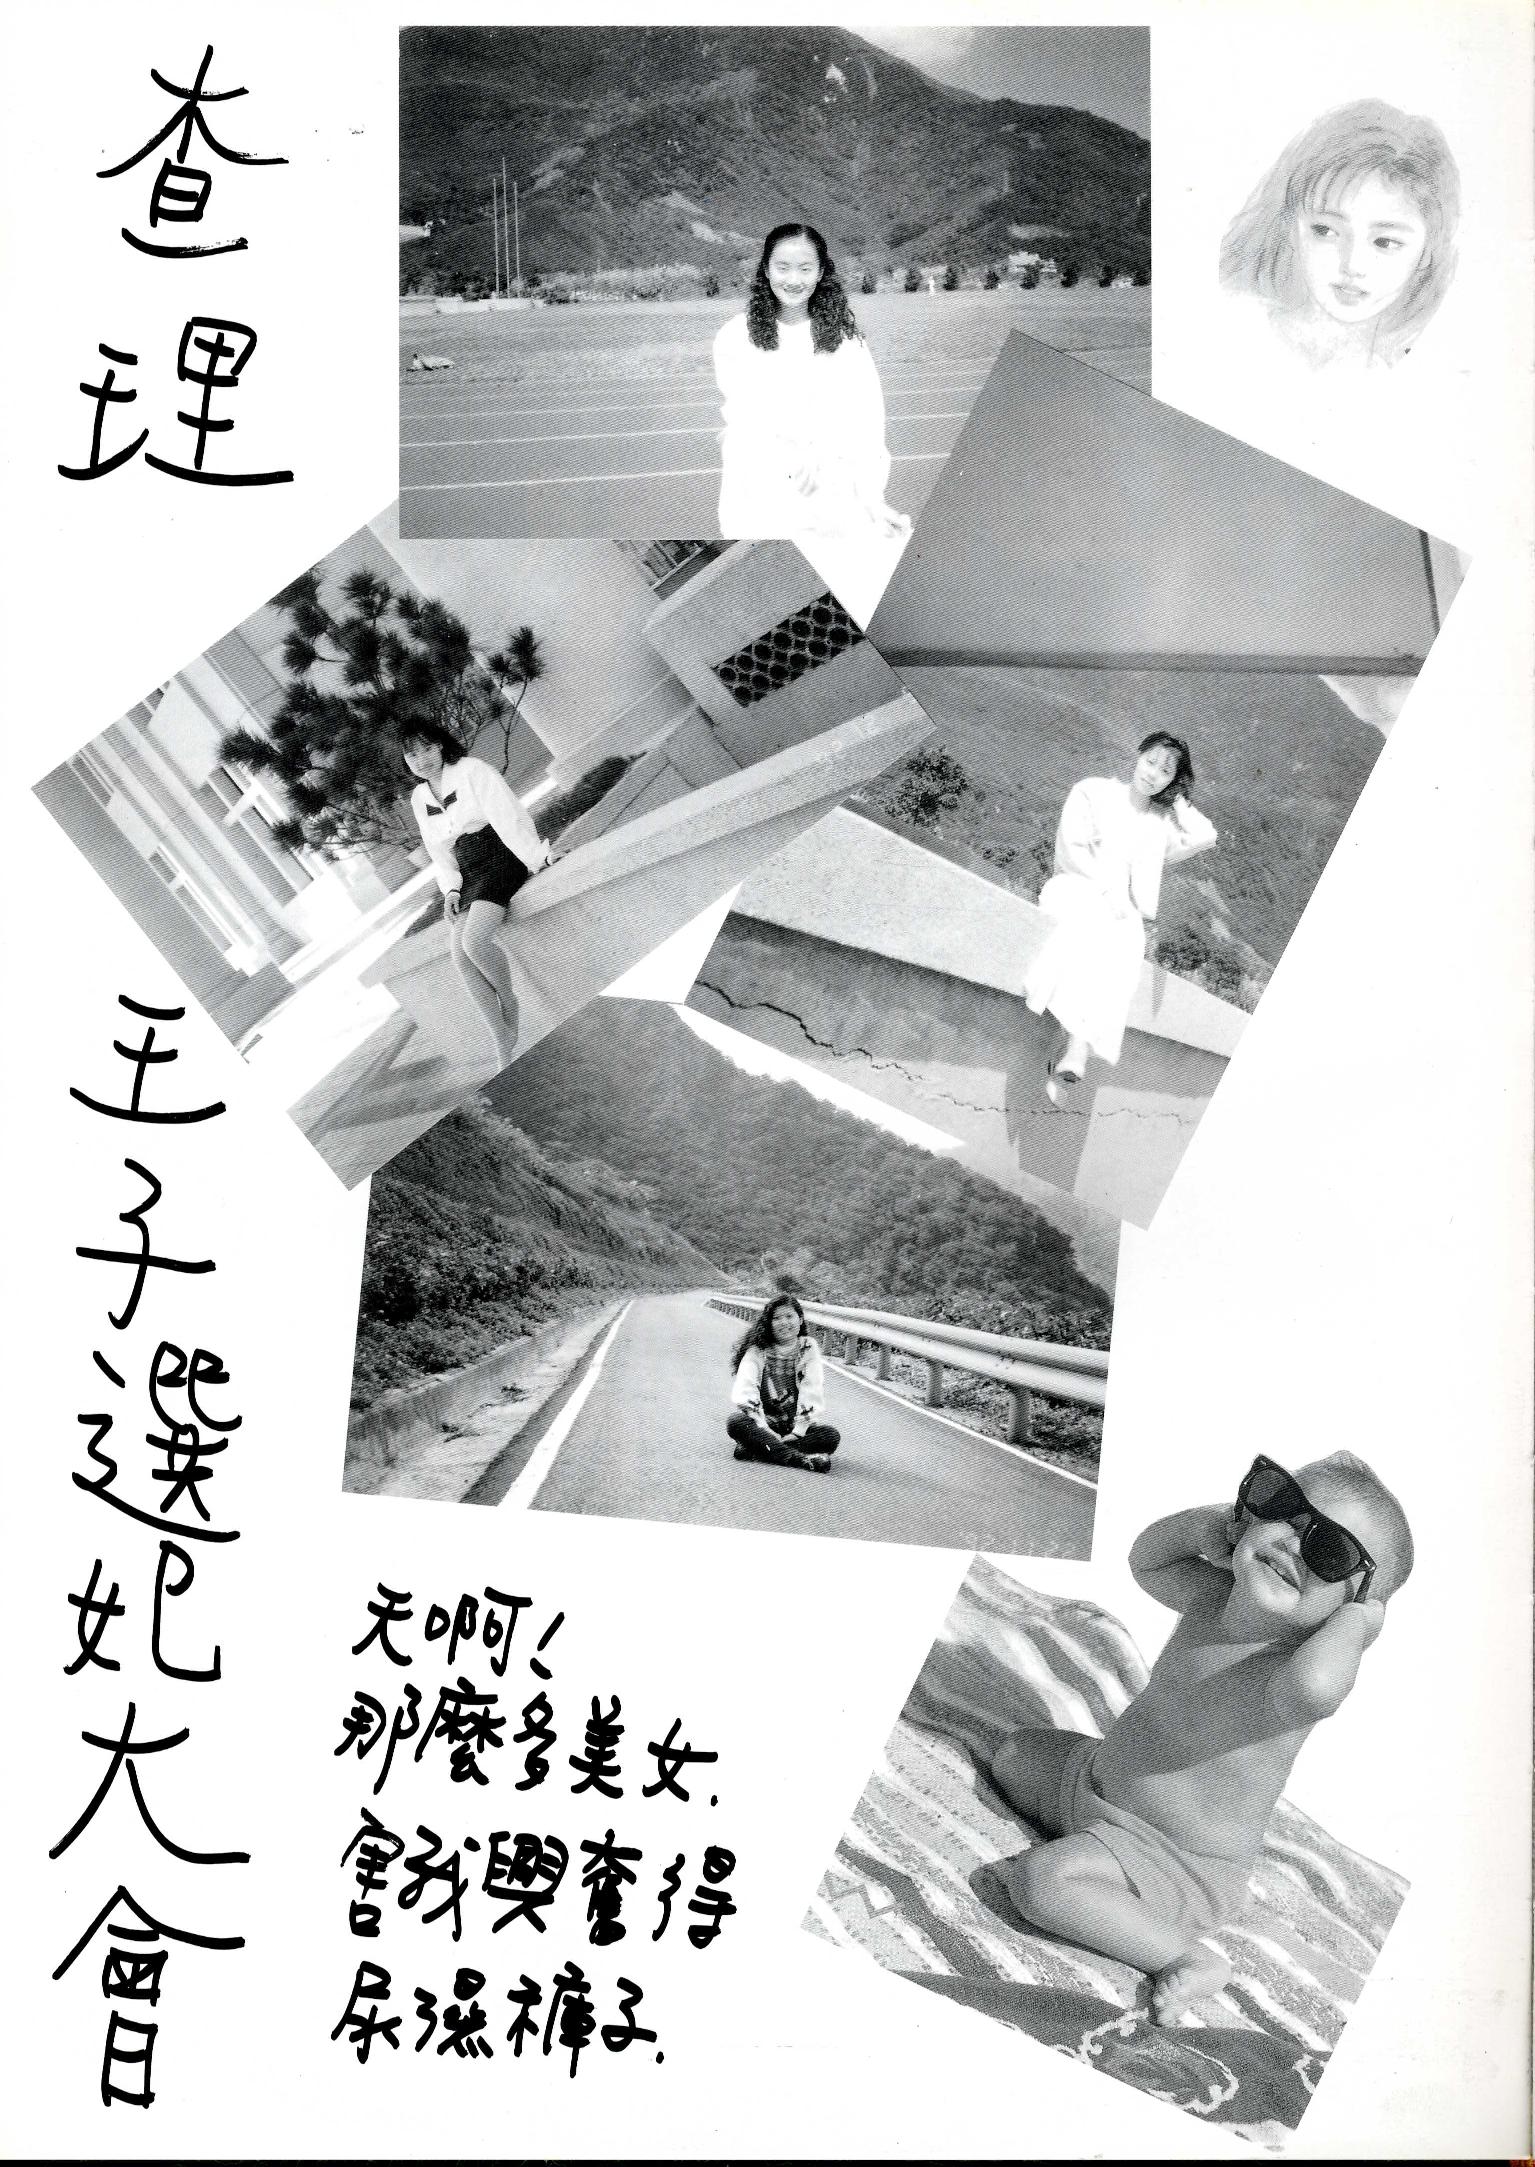 查理
王子選妃大會
天啊！
那麼多美女．
害我興奮得
尿濕褲子．